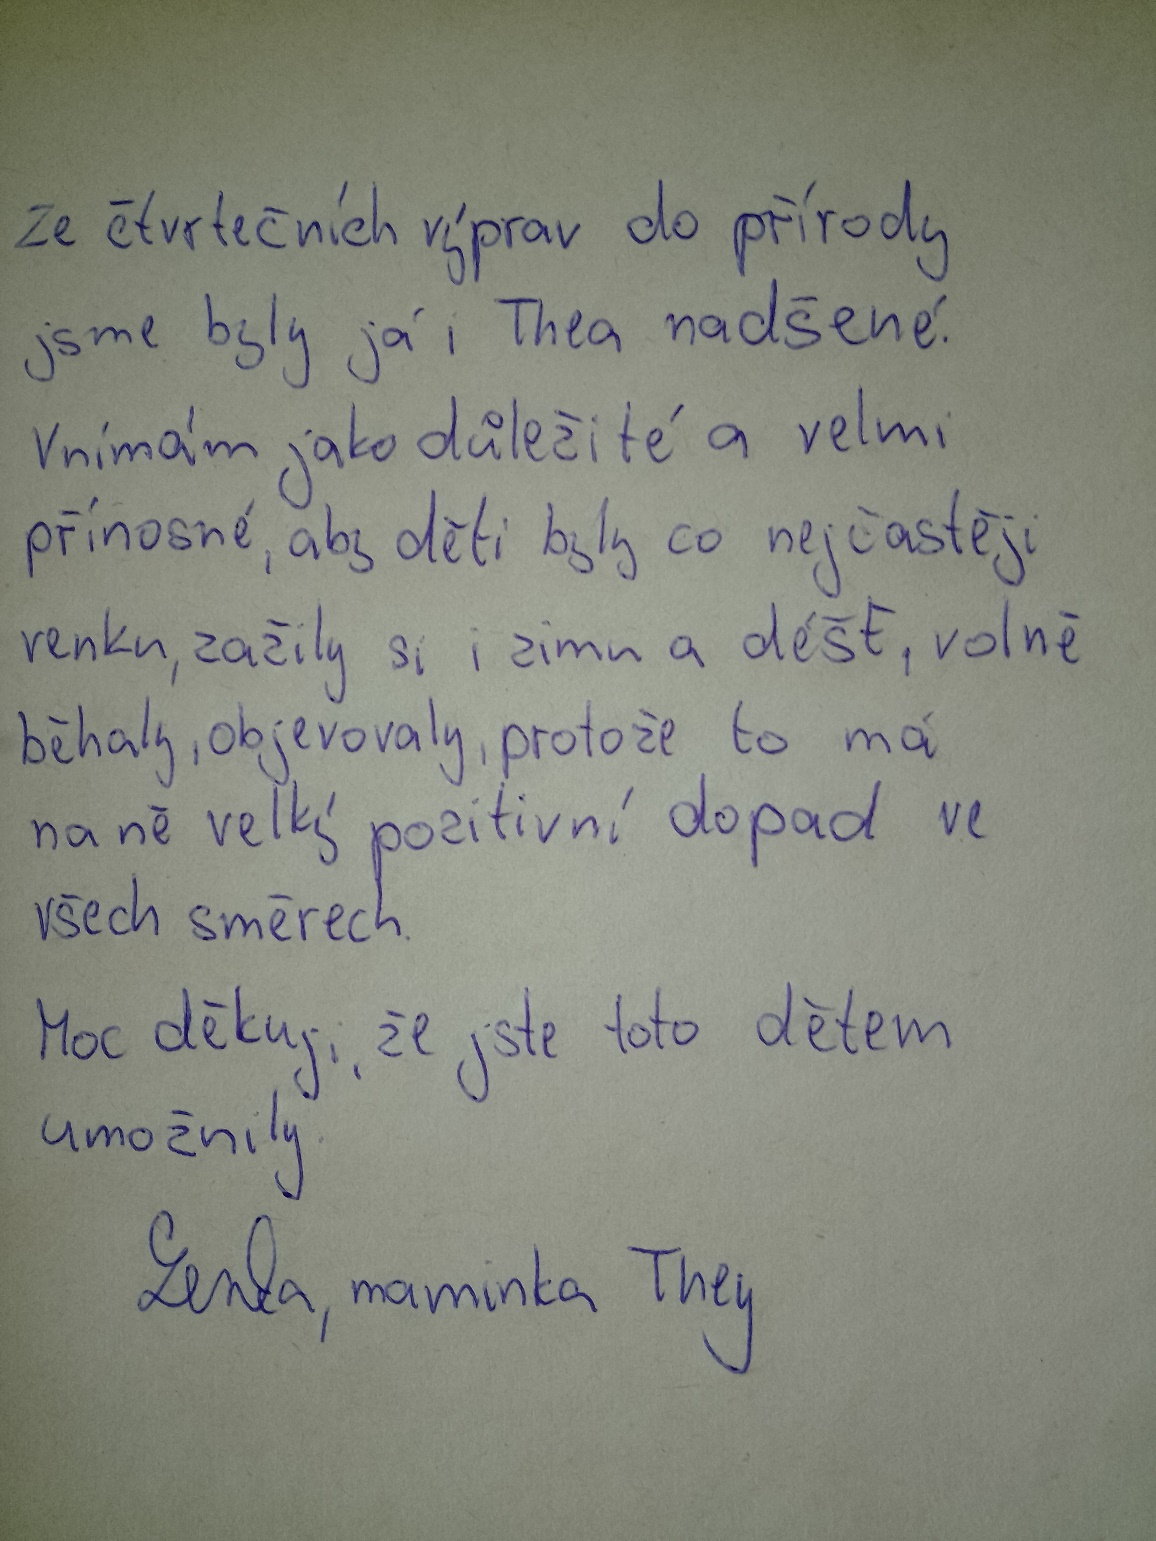 Ze čtvrtečních výprav do přírody
jsme byly já i Thea nadšené.
Vnímám jako důležité a velmi
přínosné, aby děti byly co nejčastěji
venku, zažily si i zimu a déšť, volně
běhaly, objevovaly, protože to má
na ně velký pozitivní dopad ve
všech směrech.
Moc děkuji, že jste toto dětem
umožnily.
Lenka, maminka They